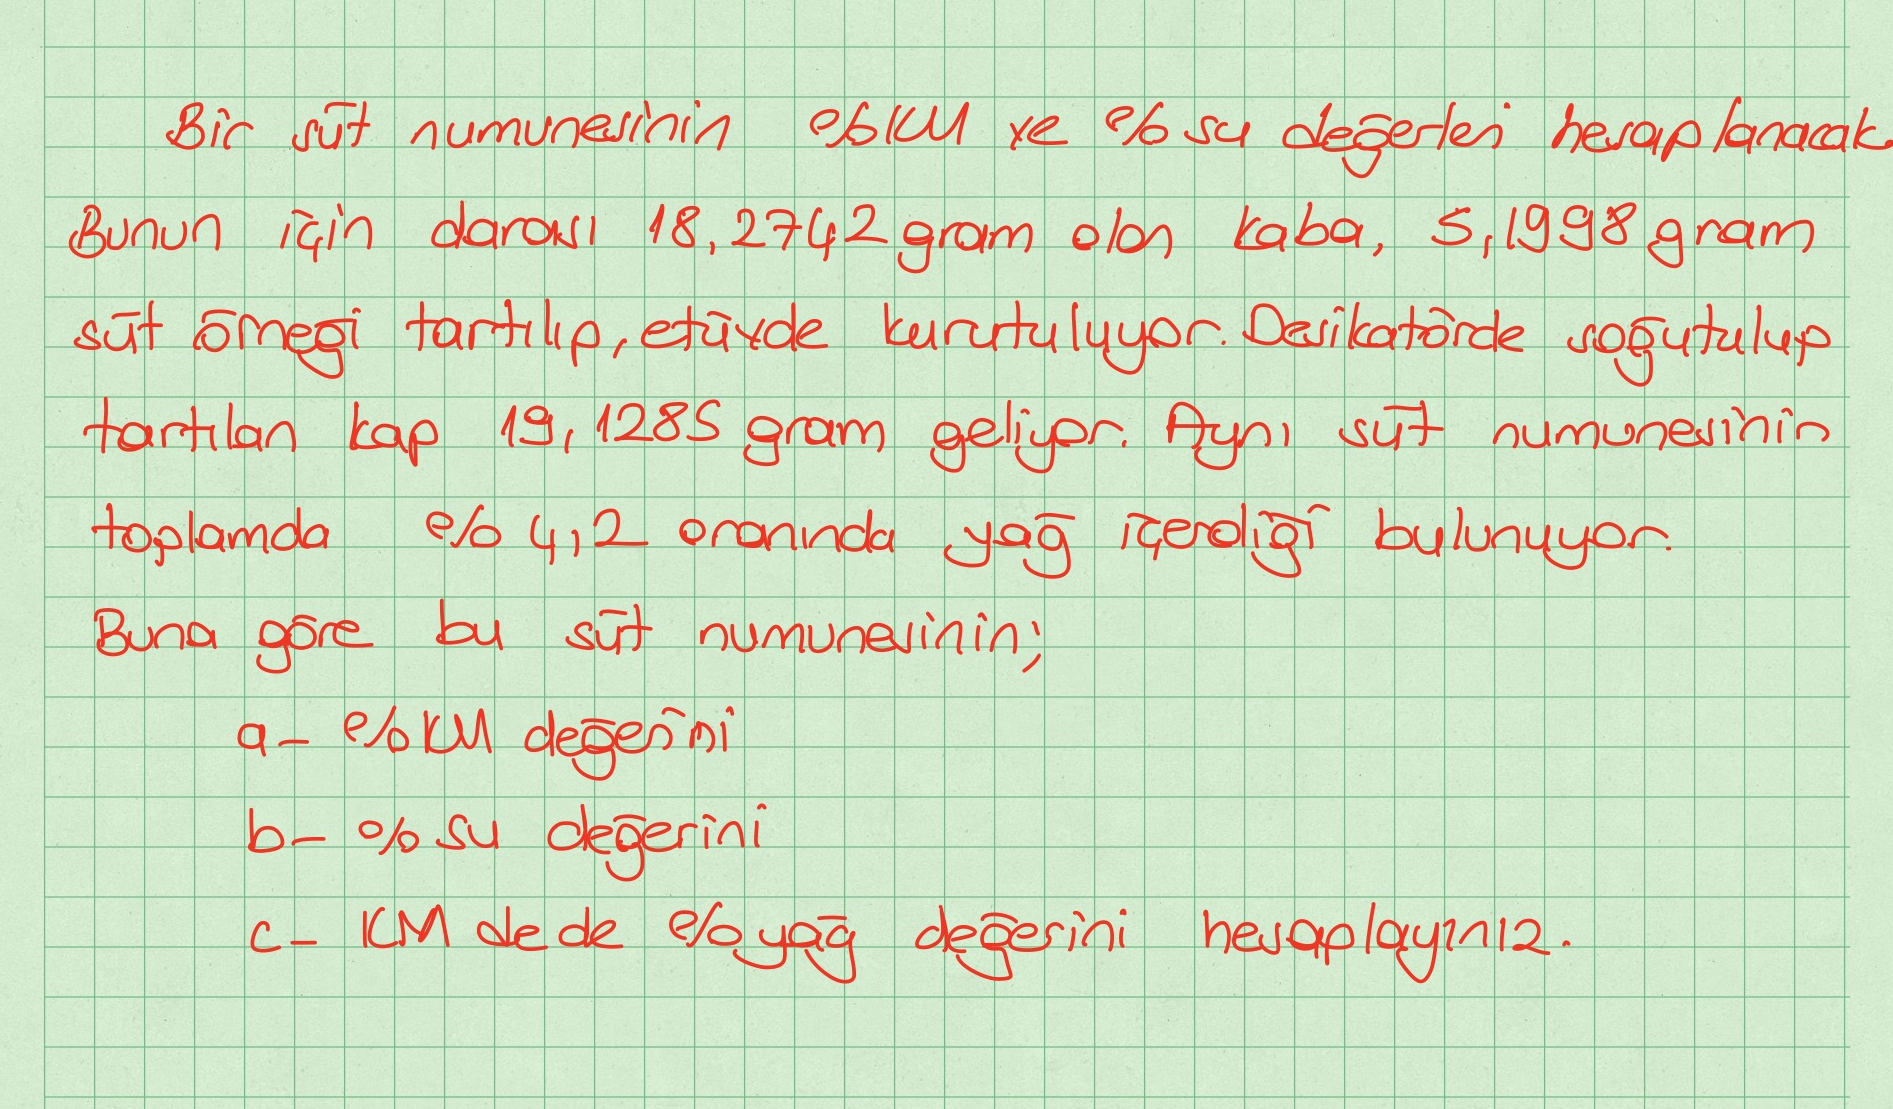 Bir süt numunesinin %KM ve % su değerleri hesaplanacak.
Bunun için darası 18,2742 gram olan kaba, 5,1998 gram
süt örneği tartılıp, etüvde kurutuluyor. Desikatörde soğutulup
tartılan kap 19,1285 gram geliyor. Aynı süt numunesinin
toplamda % 4,2 oranında yağ içerdiği bulunuyor.
Buna göre bu süt numunesinin;
a- %KM değerini
b- % su değerini
c- KM de de % yağ değerini hesaplayınız.